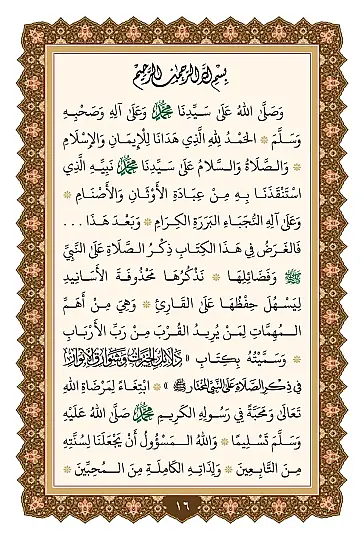 بِسْمِ اللهِ الرَّحْمٰنِ الرَّحِيْمِ
وَصَلَّى اللهُ عَلَى سَيِّدِنَا مُحَمَّدٍ وَعَلَى آلِهِ وَصَحْبِهِ
وَسَلَّمَ * الحَمْدُ لِلّٰهِ الَّذِي هَدَانَا لِلْإِيمَانِ وَالإِسْلَامِ
* وَالصَّلَاةُ وَالسَّلَامُ عَلَى سَيِّدِنَا مُحَمَّدٍ نَبِيِّهِ الَّذِي
اسْتَنْقَذَنَا بِهِ مِنْ عِبَادَةِ الأَوْثَانِ وَالأَصْنَامِ *
وَعَلَى آلِهِ النُّجَبَاءِ البَرَرَةِ الكِرَامِ * وَبَعْدَ هَذَا ...
فَالغَرَضُ فِي هَذَا الكِتَابِ ذِكْرُ الصَّلَاةِ عَلَى النَّبِيِّ
ﷺ وَفَضَائِلِهَا * نَذْكُرُهَا مَحْذُوفَةَ الأَسَانِيدِ
لِيَسْهُلَ حِفْظُهَا عَلَى القَارِئِ * وَهِيَ مِنْ أَهَمِّ
المُهِمَّاتِ لِمَنْ يُرِيدُ القُرْبَ مِنْ رَبِّ الأَرْبَابِ
* وَسَمَّيْتُهُ بِكِتَابِ « دَلَائِلِ الْخَيْرَاتِ وَشَوَارِقِ الْأَنْوَارِ
فِي ذِكْرِ الصَّلَاةِ عَلَى النَّبِيِّ الْمُخْتَارِ ﷺ » * ابْتِغَاءً لِمَرْضَاةِ اللهِ
تَعَالَى وَمَحَبَّةً فِي رَسُولِهِ الكَرِيمِ مُحَمَّدٍ صَلَّى اللهُ عَلَيْهِ
وَسَلَّمَ تَسْلِيمًا * وَاللهُ المَسْؤُولُ أَنْ يَجْعَلَنَا لِسُنَّتِهِ
مِنَ التَّابِعِينَ * وَلِذَاتِهِ الكَامِلَةِ مِنَ المُحِبِّينَ *
١٦